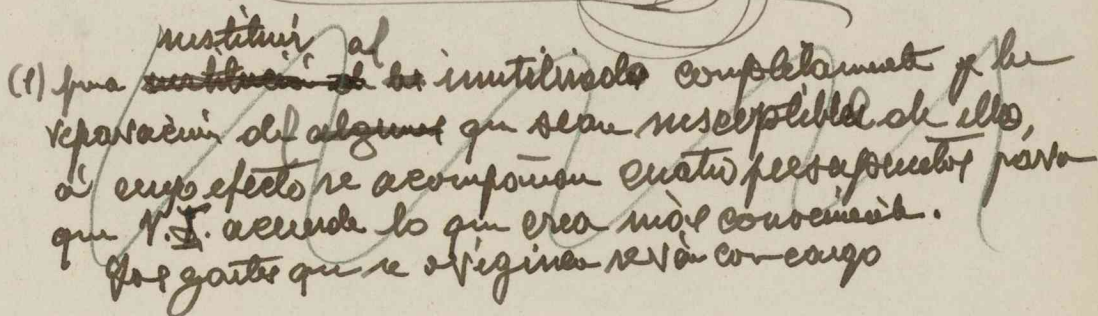 sustituir al
(1) para sustitución de los inutilizado completamente y la
reparación del algunos que sean susceptibles de ello,
á cuyo efecto se acompañan cuatro presupuestos para
que V.I. acuerde lo que crea más conveniente.
Los gastos que se originen serán con cargo